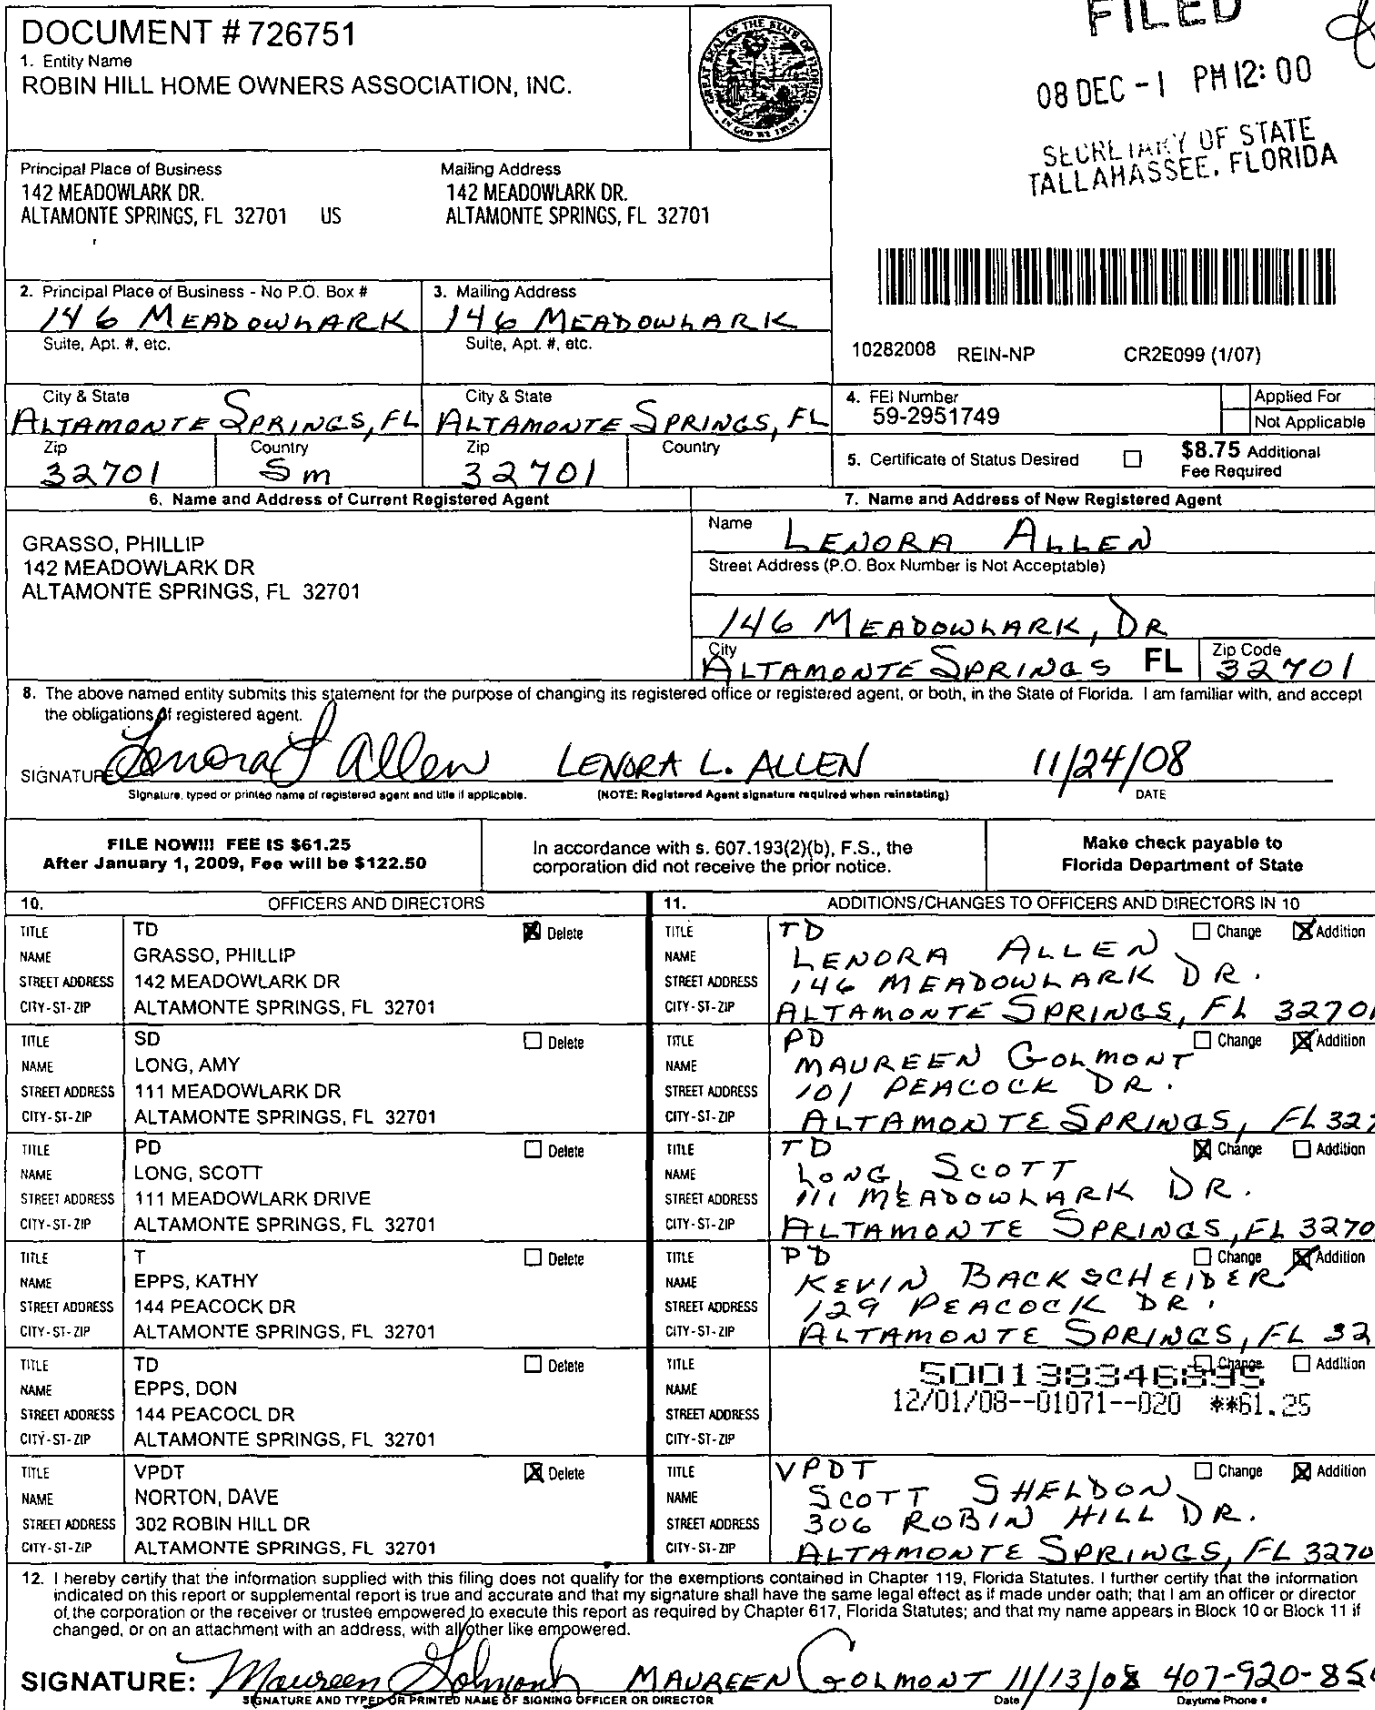 FILED
08 DEC -1 PM 12:00
SECRETARY OF STATE
TALLAHASSEE, FLORIDA
DOCUMENT # 726751
1. Entity Name
ROBIN HILL HOME OWNERS ASSOCIATION, INC.
GREAT SEAL OF THE STATE OF FLORIDA
IN GOD WE TRUST
Principal Place of Business
142 MEADOWLARK DR.
ALTAMONTE SPRINGS, FL 32701 US
Mailing Address
142 MEADOWLARK DR.
ALTAMONTE SPRINGS, FL 32701
2. Principal Place of Business - No P.O. Box #
146 MEADOWLARK
Suite, Apt. #, etc.
3. Mailing Address
146 MEADOWLARK
Suite, Apt. #, etc.
10282008 REIN-NP CR2E099 (1/07)
City & State
ALTAMONTE SPRINGS, FL
City & State
ALTAMONTE SPRINGS, FL
Zip
32701
Country
Sm
Zip
32701
Country
4. FEI Number
59-2951749
Applied For
Not Applicable
5. Certificate of Status Desired
$8.75 Additional
Fee Required
6. Name and Address of Current Registered Agent
GRASSO, PHILLIP
142 MEADOWLARK DR
ALTAMONTE SPRINGS, FL 32701
7. Name and Address of New Registered Agent
Name
LENORA ALLEN
Street Address (P.O. Box Number is Not Acceptable)
146 MEADOWLARK, DR
City
ALTAMONTE SPRINGS FL
Zip Code
32701
8. The above named entity submits this statement for the purpose of changing its registered office or registered agent, or both, in the State of Florida. I am familiar with, and accept
the obligations of registered agent.
SIGNATURE Lenora L Allen LENORA L. ALLEN 11/24/08
Signature, typed or printed name of registered agent and title if applicable. (NOTE: Registered Agent signature required when reinstating) DATE
FILE NOW!!! FEE IS $61.25
After January 1, 2009, Fee will be $122.50
In accordance with s. 607.193(2)(b), F.S., the
corporation did not receive the prior notice.
Make check payable to
Florida Department of State
10. OFFICERS AND DIRECTORS
11. ADDITIONS/CHANGES TO OFFICERS AND DIRECTORS IN 10
TITLE TD Delete
NAME GRASSO, PHILLIP
STREET ADDRESS 142 MEADOWLARK DR
CITY-ST-ZIP ALTAMONTE SPRINGS, FL 32701
TITLE TD Change Addition
NAME LENORA ALLEN
STREET ADDRESS 146 MEADOWLARK DR.
CITY-ST-ZIP ALTAMONTE SPRINGS, FL 32701
TITLE SD Delete
NAME LONG, AMY
STREET ADDRESS 111 MEADOWLARK DR
CITY-ST-ZIP ALTAMONTE SPRINGS, FL 32701
TITLE PD Change Addition
NAME MAUREEN GOLMONT
STREET ADDRESS 101 PEACOCK DR.
CITY-ST-ZIP ALTAMONTE SPRINGS, FL 327
TITLE PD Delete
NAME LONG, SCOTT
STREET ADDRESS 111 MEADOWLARK DRIVE
CITY-ST-ZIP ALTAMONTE SPRINGS, FL 32701
TITLE TD Change Addition
NAME LONG, SCOTT
STREET ADDRESS 111 MEADOWLARK DR.
CITY-ST-ZIP ALTAMONTE SPRINGS, FL 3270
TITLE T Delete
NAME EPPS, KATHY
STREET ADDRESS 144 PEACOCK DR
CITY-ST-ZIP ALTAMONTE SPRINGS, FL 32701
TITLE PD Change Addition
NAME KEVIN BACKSCHEIDER
STREET ADDRESS 129 PEACOCK DR.
CITY-ST-ZIP ALTAMONTE SPRINGS, FL 32
TITLE TD Delete
NAME EPPS, DON
STREET ADDRESS 144 PEACOCL DR
CITY-ST-ZIP ALTAMONTE SPRINGS, FL 32701
TITLE Change Addition
500138346895
NAME
12/01/08--01071--020 **61.25
STREET ADDRESS
CITY-ST-ZIP
TITLE VPDT Delete
NAME NORTON, DAVE
STREET ADDRESS 302 ROBIN HILL DR
CITY-ST-ZIP ALTAMONTE SPRINGS, FL 32701
TITLE VPDT Change Addition
NAME SCOTT SHELDON
STREET ADDRESS 306 ROBIN HILL DR.
CITY-ST-ZIP ALTAMONTE SPRINGS, FL 3270
12. I hereby certify that the information supplied with this filing does not qualify for the exemptions contained in Chapter 119, Florida Statutes. I further certify that the information
indicated on this report or supplemental report is true and accurate and that my signature shall have the same legal effect as if made under oath; that I am an officer or director
of the corporation or the receiver or trustee empowered to execute this report as required by Chapter 617, Florida Statutes; and that my name appears in Block 10 or Block 11 if
changed, or on an attachment with an address, with all other like empowered.
SIGNATURE: Maureen Golmont MAUREEN GOLMONT 11/13/08 407-920-850
SIGNATURE AND TYPED OR PRINTED NAME OF SIGNING OFFICER OR DIRECTOR Date Daytime Phone #